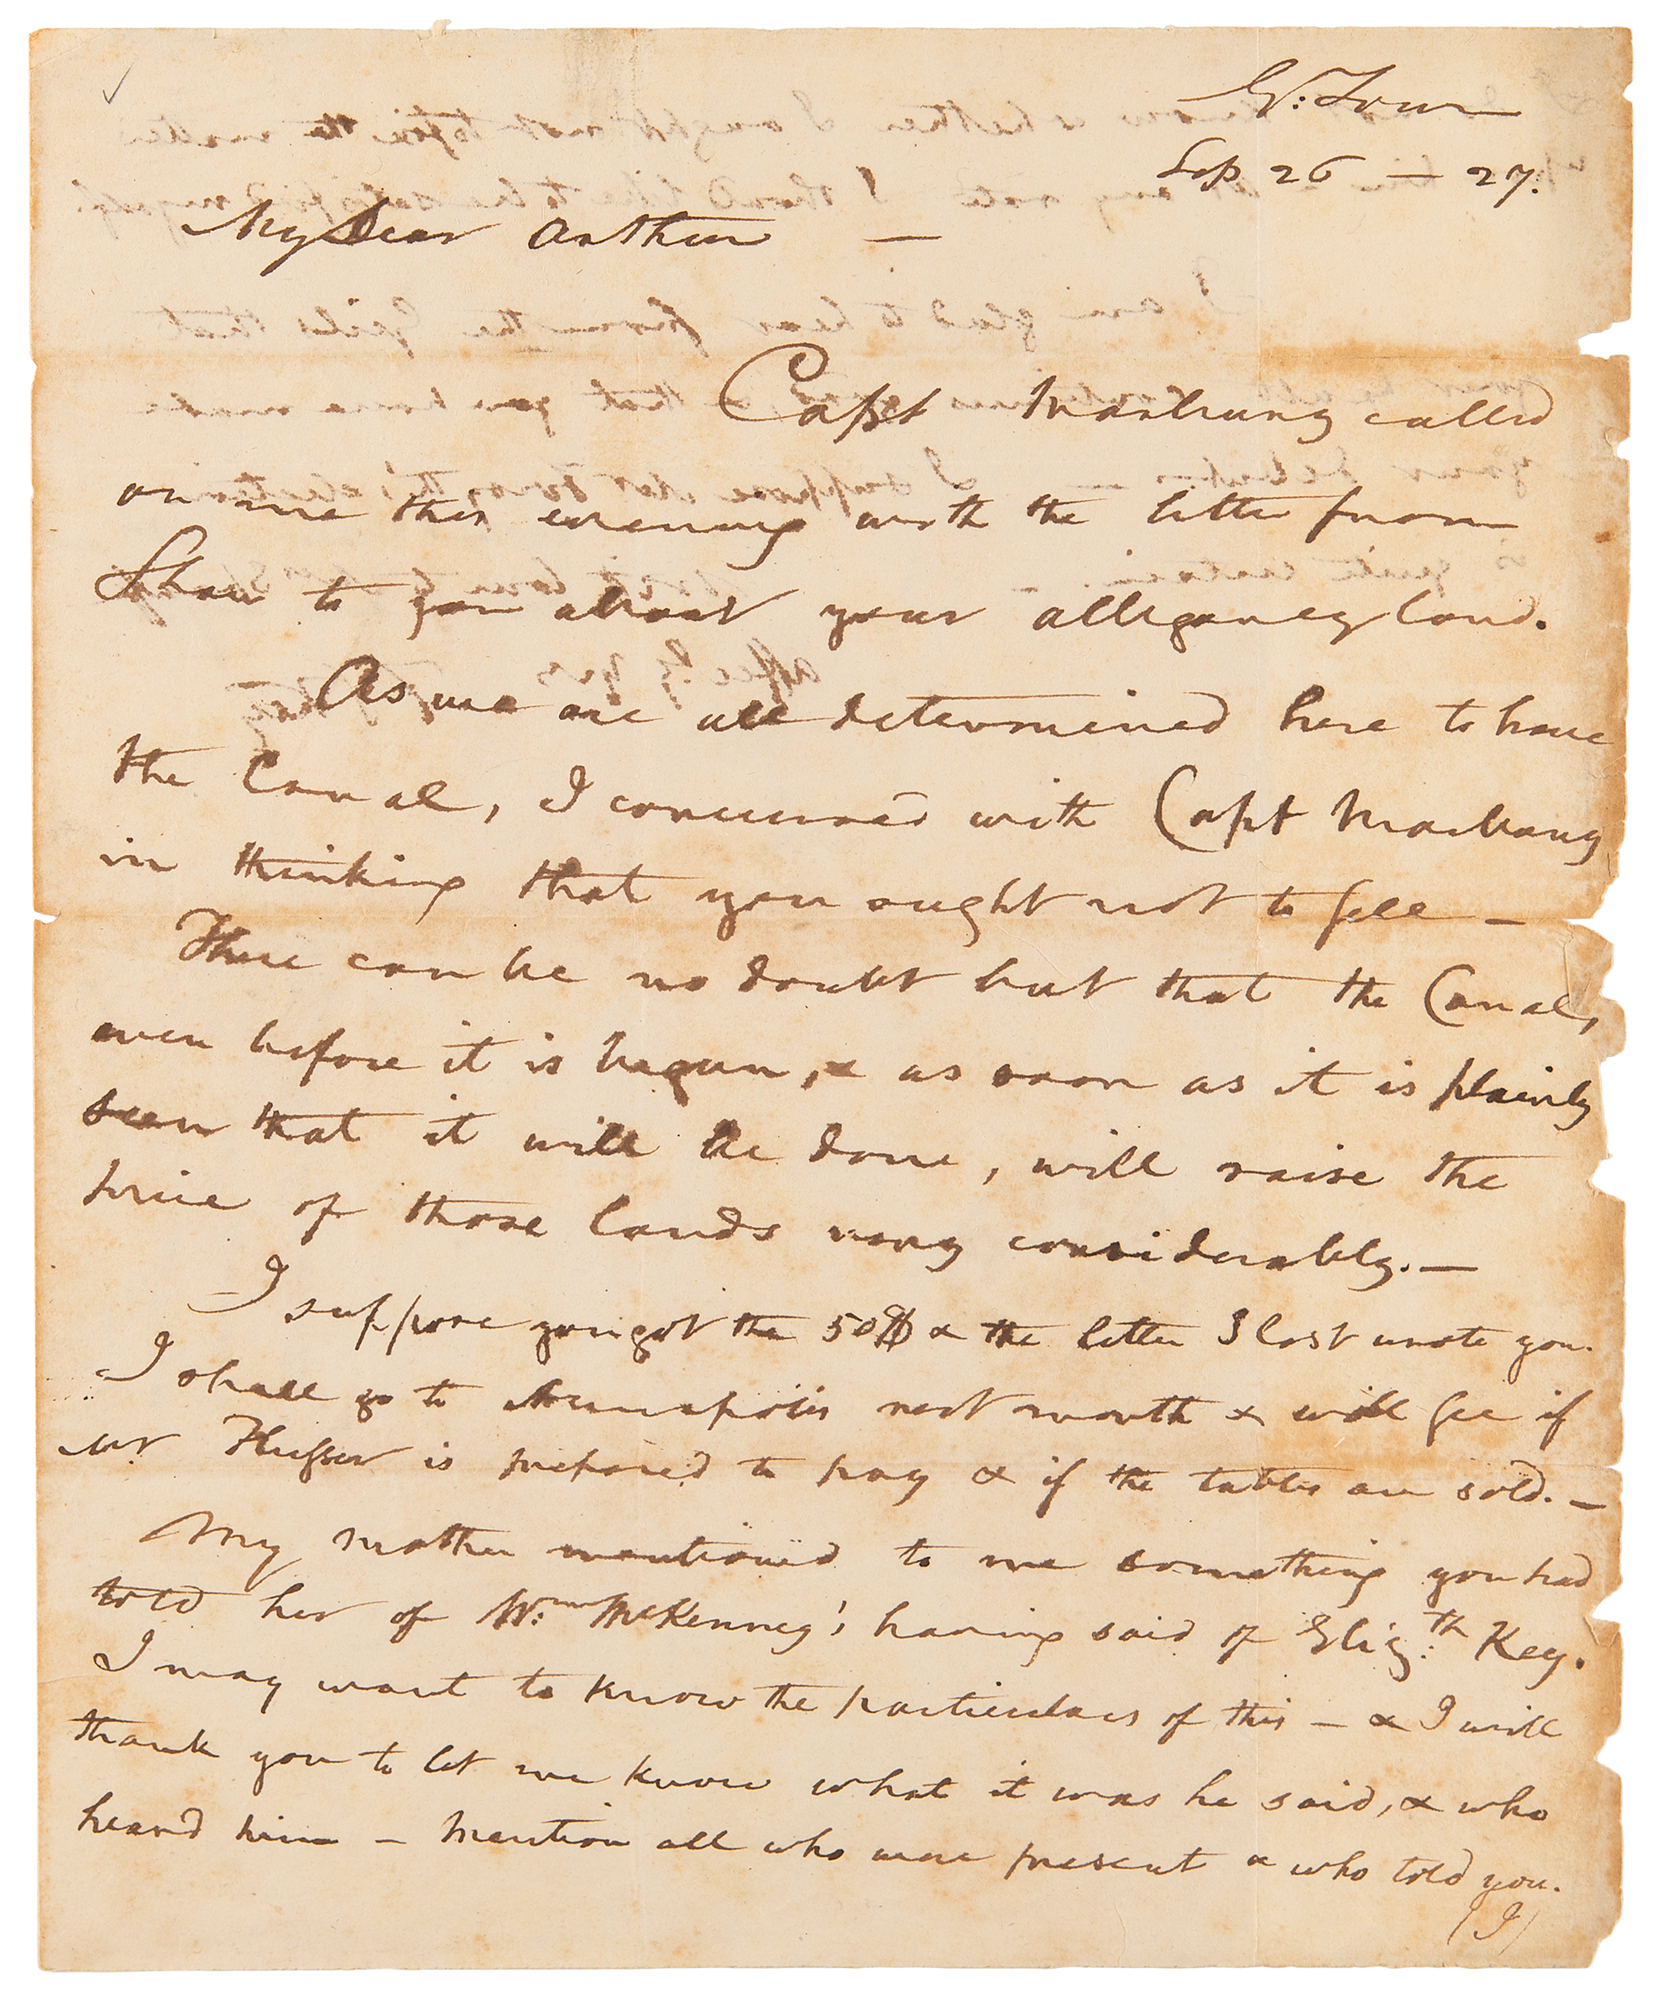 G: Town
Sep 26 — 27.
My Dear Arthur —
Capt Marbury called
on me this evening with the letter from
Shaw to you about your allegoney land.
As we are all determined here to have
the Canal, I concurred with Capt Marbury
in thinking that you ought not to sell —
There can be no doubt but that the Canal,
even before it is begun, & as soon as it is plainly
seen that it will be done, will raise the
price of those lands very considerably. —
I suppose you got the 50$ & the letter I last wrote you.
I shall go to Annapolis next month & will see if
Mr. is prepared to pay & if the tables are sold. —
My mother mentioned to me something you had
told her of Wm: McKenney's having said of Eliz:th Key.
I may want to know the particulars of this — & I will
thank you to let me know what it was he said, & who
heard him — Mention all who were present & who told you.
(I)